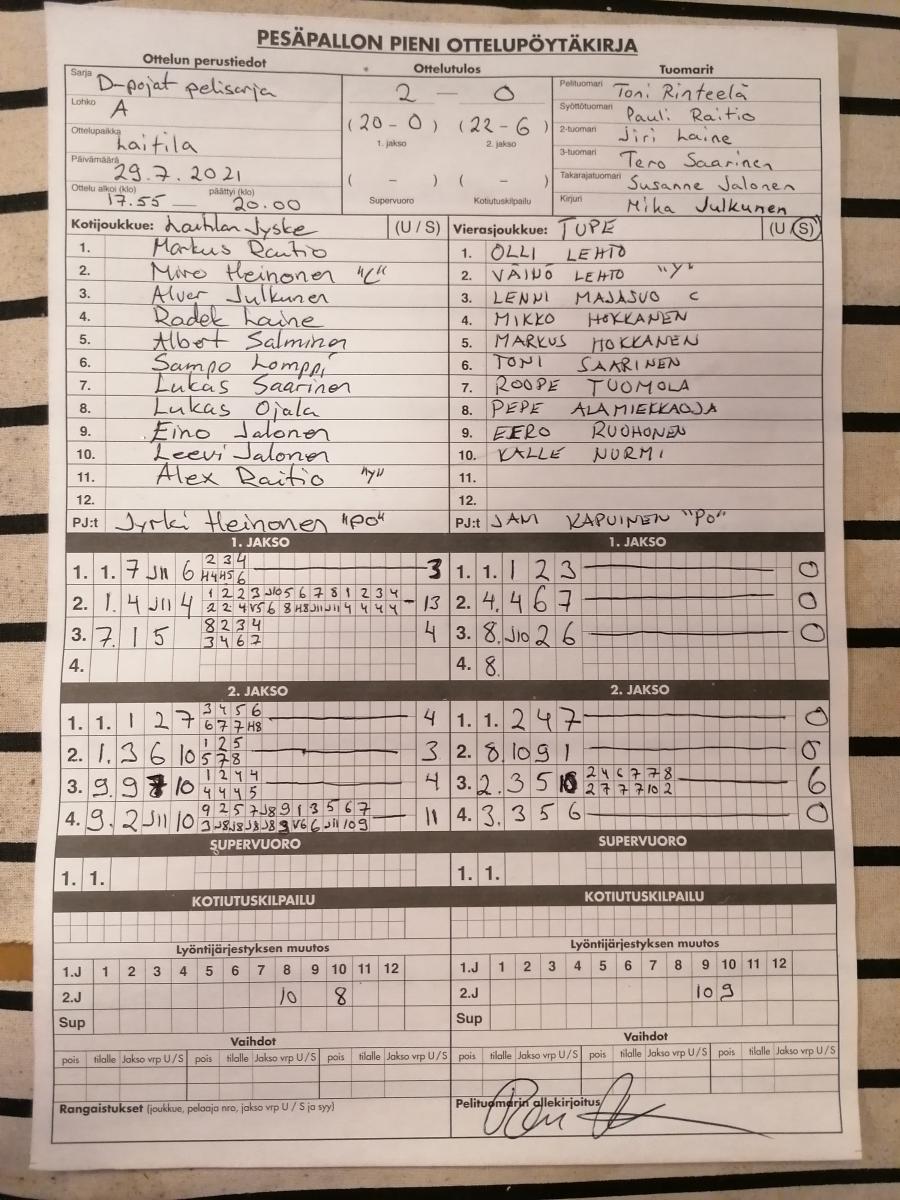 PESÄPALLON PIENI OTTELUPÖYTÄKIRJA
Ottelun perustiedot
Sarja D-pojat pelisarja
Lohko A
Ottelupaikka Laitila
Päivämäärä 29.7.2021
Ottelu alkoi (klo) 17.55 — päättyi (klo) 20.00
Ottelutulos
2 — 0
(20 - 0) (22 - 6)
1. jakso 2. jakso
( - ) ( - )
Supervuoro Kotiutuskilpailu
Tuomarit
Pelituomari Toni Rinteelä
Syöttötuomari Pauli Raitio
2-tuomari Jiri Laine
3-tuomari Tero Saarinen
Takarajatuomari Susanne Jalonen
Kirjuri Mika Julkunen
Kotijoukkue: Laitilan Jyske (U / S)
1. Markus Rautio
2. Miro Heinonen "C"
3. Alver Julkunen
4. Radek Laine
5. Albert Salminen
6. Sampo Lomppi
7. Lukas Saarinen
8. Lukas Ojala
9. Eino Jalonen
10. Leevi Jalonen
11. Alex Raitio "Y"
12.
PJ:t Jyrki Heinonen "PO"
Vierasjoukkue: TUPE (U / S)
1. OLLI LEHTO
2. VÄINÖ LEHTO "Y"
3. LENNI MAJASUO C
4. MIKKO HOKKANEN
5. MARKUS HOKKANEN
6. TONI SAARINEN
7. ROOPE TUOMOLA
8. PEPE ALAMIEKKAOJA
9. EERO RUOHONEN
10. KALLE NURMI
11.
12.
PJ:t JANI KAPUINEN "PO"
1. JAKSO
1. 1. 7 J11 6 2 3 4 3
H4 H5 6
2. 1. 4 J11 4 1 2 2 3 J10 5 6 7 8 1 2 3 4 - 13
2 2 4 V5 6 8 H8 J11 J11 4 4 4 4
3. 7. 1 5 8 2 3 4 4
3 4 6 7
4.
1. JAKSO
1. 1. 1 2 3 0
2. 4. 4 6 7 0
3. 8. J10 2 6 0
4. 8.
2. JAKSO
1. 1. 1 2 7 3 4 5 6 4
6 7 7 H8
2. 1. 3 6 10 1 2 5 3
5 7 8
3. 9. 9 7 10 1 2 4 4 4
4 4 4 5
4. 9. 2 J11 10 9 2 5 7 J8 9 1 3 5 6 7 11
9 J8 J8 J8 J8 9 V6 6 J11 10 9
2. JAKSO
1. 1. 2 4 7 0
2. 8. 10 9 1 0
3. 2. 3 5 10 2 4 6 7 7 8 6
2 7 7 7 10 2
4. 3. 3 5 6 0
SUPERVUORO
1. 1.
SUPERVUORO
1. 1.
KOTIUTUSKILPAILU
KOTIUTUSKILPAILU
Lyöntijärjestyksen muutos
1.J 1 2 3 4 5 6 7 8 9 10 11 12
2.J 10 8
Sup
Lyöntijärjestyksen muutos
1.J 1 2 3 4 5 6 7 8 9 10 11 12
2.J 10 9
Sup
Vaihdot
pois tilalle Jakso vrp U / S pois tilalle Jakso vrp U / S pois tilalle Jakso vrp U / S
Vaihdot
pois tilalle Jakso vrp U / S pois tilalle Jakso vrp U / S pois tilalle Jakso vrp U / S
Rangaistukset (joukkue, pelaaja nro, jakso vrp U / S ja syy)
Pelituomarin allekirjoitus